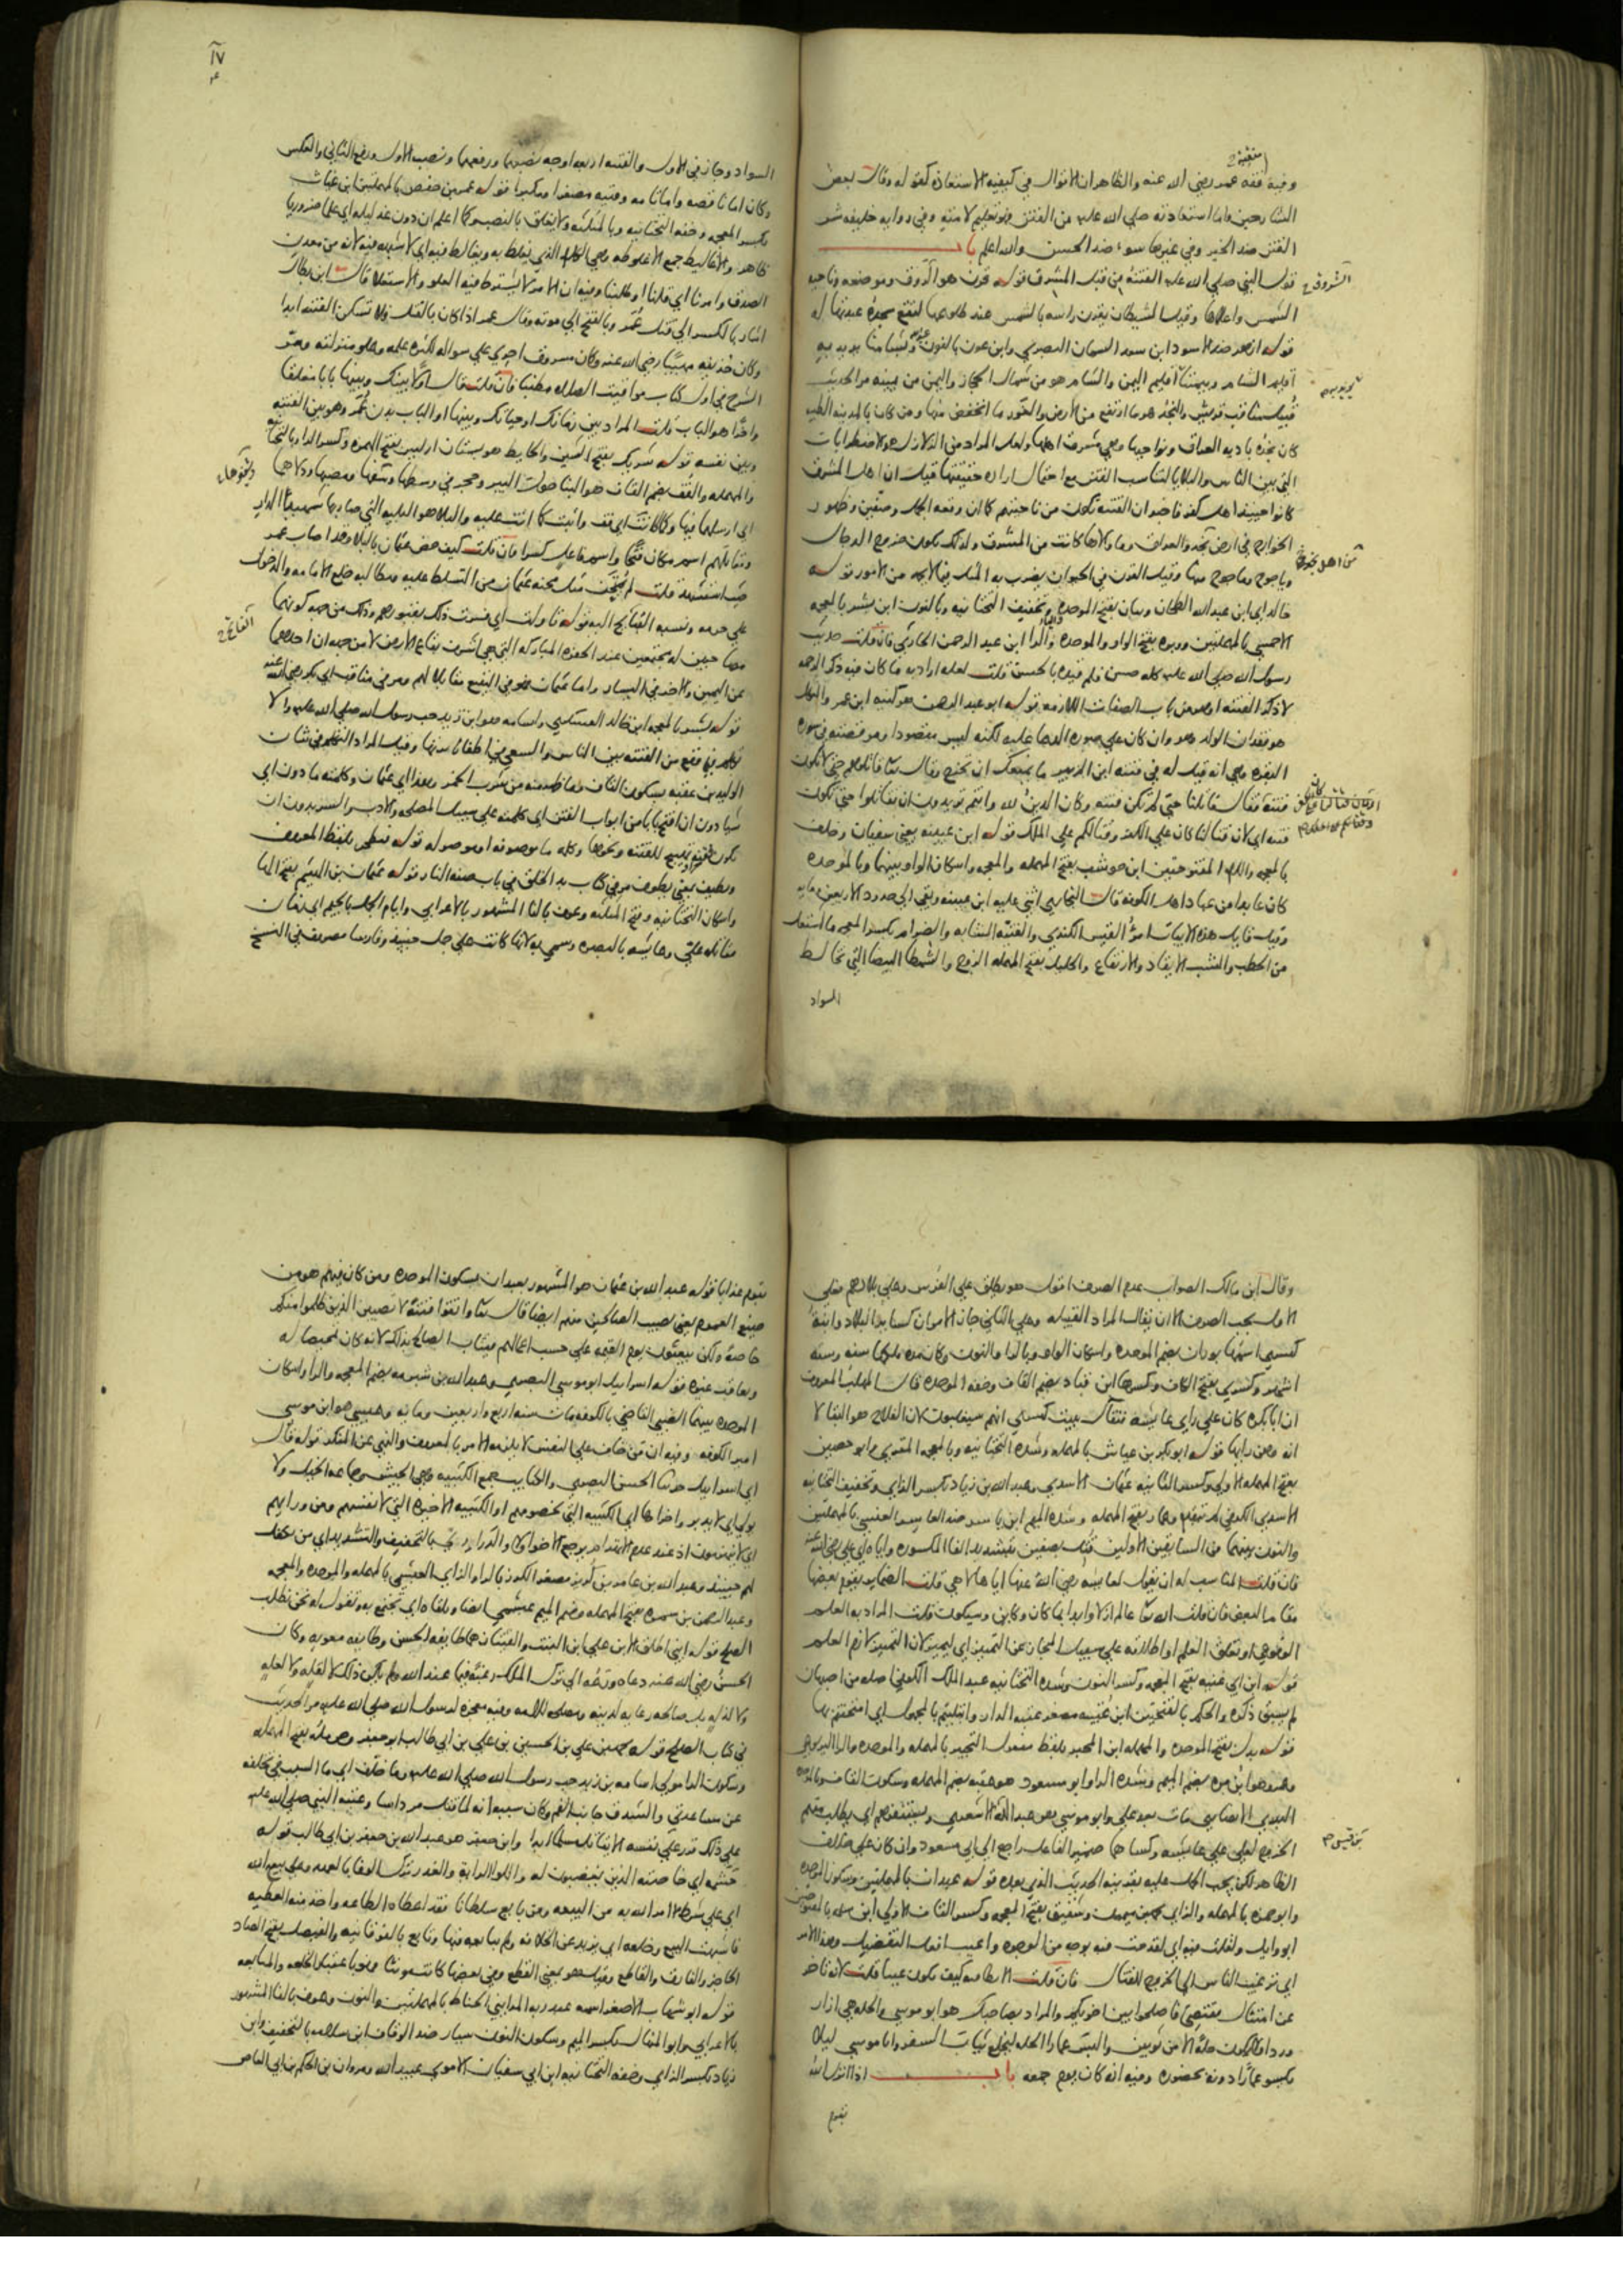 منقبة
وفيه فقه عمر رضي الله عنه والظاهر ان الاقوال في كيفيه الاستعاذه كقوله وقال بعض
الشارحين واما استعاذته صلي الله عليه من الفتن فهو تعليم لامته وفي روايه خليفه شر
الفتن ضد الخير وفي غيرها سوء ضد الحسن والله اعلم باب
قول النبي صلي الله عليه الفتنة من قبل المشرق قوله قرن هو الروق وموضعه وناحيه
الشمس واعلاها وقيل الشيطان يقرن راسه بالشمس عند طلوعها لتقع سجدة عبدتها له
قوله ازهر ضد الاسود ابن سعد السمان البصري وابن عون بالنون وشامنا يريد به
اقليم الشام ويمننا اقليم اليمن والشام هو من شمال الحجاز واليمن من يمينه مر الحديث
قبيل مناقب قريش والنجد هو ما ارتفع من الارض والغور ما انخفض منها ومن كان بالمدينه الطيبه
كان نجده باديه العراق ونواحيها وهي مشرق اهلها ولعل المراد من الزلازل هو الاضطرابات
التي بين الناس والبلايا لتناسب الفتن مع احتمال اراده حقيقتها قيل ان اهل المشرق
كانوا حينئذ اهل كفر فاخبر ان الفتنة تكون من ناحيتهم كما ان وقعه الجمل وصفين وظهور
الخوارج في ارض نجد والعراق وما والاها كانت من المشرق ولذلك يكون خروج الدجال
وياجوج وماجوج منها وقيل القرن في الحيوان يضرب به المثل فيما لا يحمد من الامور قوله
خالد اي ابن عبد الله الطحان وبيان بفتح الموحده وتخفيف التحتانيه وبالنون ابن بشر بالمعجمه
الاحمسي بالمهملتين ووبره بفتح الواو والموحده والرا ابن عبد الرحمن الحارثي فان قلت حديث
رسول الله صلي الله عليه كله حسن فلم قيده بالحسن قلت لعله اراد به ما كان فيه ذكر الرحمه
لا ذكر الفتنه او هو من باب الصفات اللازمه قوله ابو عبد الرحمن هو كنيه ابن عمر والثكل
هو فقدان الولد وهو وان كان علي صوره الدعا عليه لكنه ليس مقصودا ومر قصته في سوره
البقره وهي انه قيل له في فتنه ابن الزبير ما يمنعك ان تخرج وقال تعالي قاتلوهم حتي لا تكون
فتنه فقال قاتلنا حتي لم تكن فتنه وكان الدين لله وانتم تريدون ان تقاتلوا حتي تكون
فتنه اي لان قتالنا كان علي الكفر وقتالكم علي الملك قوله ابن عيينه يعني سفيان وخلف
بالمعجمه واللام المفتوحتين ابن حوشب بفتح المهمله والمعجمه واسكان الواو بينهما وبالموحده
كان عابدا من عباد اهل الكوفه قال البخاري اثني عليه ابن عيينه وبقي الي حدود الاربعين ومايه
وقيل قايل هذه الابيات امرؤ القيس الكندي والفتيه الشابه والضرام بكسر المعجمه ما اشتعل
من الحطب والشب الايقاد والارتفاع والحليل بفتح المهمله الزوج والشمطا البيضا التي يخالط
السواد
١٧
السواد وجاز في الاول والفتنه اربعه اوجه نصبهما ورفعهما ونصب الاول ورفع الثاني والعكس
بكسر المعجمه وخفه التحتانيه وبالمثلثه ولا يتعلق بالنصب كما اعلم ان دون غد ليله اي علما ضروريا
ظاهرا والاغاليط جمع الاغلوطه وهي الكلام الذي يغلط به ويغالط فيه اي لا شبهه فيه لانه من معدن
الصدق وامرنا اي قلنا او طلبنا وفيه ان الامر لا يشترط فيه العلو والاستعلا قال ابن بطال
اشار بالكسر الي قتل عمر وبالفتح الي موته وقال عمر اذا كان بالقتل ولا تسكن الفتنه ابدا
وكان حذيفه مهيبا رضي الله عنه وكان مسروق اجري علي سواله لكثره علمه وعلو منزلته ومر
الشرح في اول كتاب مواقيت الصلاه مطنبا فان قلت قال اولا بينك وبينها بابا مغلقا
واخرا هو الباب قلت المراد بين زمانك او حياتك وبينها او الباب بدن عمر وهو بين الفتنه
وبين نفسه قوله شريك بفتح الشين والحايط هو بستان اريس بفتح الهمزه وكسر الرا وبالتحتانيه
والمهمله والقف بضم القاف هو البنا حول البير وحجر في وسطها وشفتها ومصبها ودلاهما
اي ارسلهما فيها
ومقابلهم اسم مكان فتحا واسم فاعل كسرا فان قلت كيف خص عثمان بالبلا وقد اصاب عمر
حيث استشهد قلت لم يمتحن مثل محنه عثمان من التسلط عليه ومطالبه خلع الامامه والدخول
علي حرمه ونسبه القبايح اليه قوله تاولت اي فسرت ذلك بقبورهم وذلك من جهه كونهما
مصاحبين له مجتمعين عند الحفره المباركه التي هي اشرف بقاع الارض لا من جهه ان احدهما
عن اليمين والاخر في اليسار واما عثمان فهو في البقيع مقابلا لهم ومر في مناقب ابي بكر رضي الله عنه
قوله بشر بالمعجمه ابن خالد العسكري واسامه هو ابن زيد حب رسول الله صلي الله عليه والا
تكلم فيما وقع من الفتنه بين الناس والسعي في اطفاء نارتها وقيل المراد التكلم في شان
الوليد بن عقبه بسكون القاف وما ظهر منه من شرب الخمر وهذا اي عثمان وكلمته ما دون اي
شيا دون ان افتح بابا من ابواب الفتن اي كلمته علي سبيل المصلحه والادب والسر بدون ان
يكون فيه تهييج للفتنه ونحوها وكلمه ما موصوفه او موصوله قوله فيطحن بلفظ المعروف
ويطيف بمعني يطوف مر في كتاب بدء الخلق في باب صفه النار قوله عثمان بن الهيثم بفتح الها
واسكان التحتانيه وفتح المثلثه وعوف بالفا المشهور بالاعرابي وايام الجمل بالجيم اي زمان
مقاتله علي وعايشه بالبصره وسمي به لانها كانت علي جمل حينئذ وفارسا مصروف في النسخ
وقال ابن مالك الصواب عدم الصرف اقول هو يطلق علي الفرس وعلي بلادهم فعلي
الاول يجب الصرف الا ان يقال المراد القبيله وعلي الثاني جاز الامران كسائر البلاد وابنة
كسري اسمها بوران بضم الموحده واسكان الواو وبالرا والنون وكان مده ملكها سنه وسته
اشهر وكسري بفتح الكاف وكسرها ابن قباد بضم القاف وخفه الموحده قال المهلب المعروف
ان ابا بكره كان علي راي عايشه فتفال ببنت كسري انهم سيغلبون لان الفلاح هو البقا لا
انه وهن رايها قوله ابو بكر بن عياش بالمهمله وشده التحتانيه وبالمعجمه المقري وابو حصين
بفتح المهمله الاولي وكسر الثانيه عثمان الاسدي وعبد الله بن زياد بكسر الزاي وتخفيف التحتانيه
الاسدي الكوفي لم يتقدم وعمار بفتح المهمله وشده الميم ابن ياسر ضد العاسر العنسي بالمهملتين
والنون بينهما من السابقين الاولين قتل بصفين بتشديد الفا المكسوره واياه اي علي رضي الله عنه
فان قلت المناسب له ان يقول لعايشه رضي الله عنها اياها لا هي قلت الضماير يقوم بعضها
مقام البعض فان قلت الله تعالي عالم ازلا وابدا بما كان وكاين وسيكون قلت المراد به العلم
الوقوعي او تعلق العلم او اطلاقه علي سبيل المجاز عن التمييز اي ليميز لان التمييز لازم العلم
قوله ابن ابي غنيه بفتح المعجمه وكسر النون وشده التحتانيه عبد الملك الكوفي اصله من اصبهان
لم يسبق ذكره والحكم بالفتحتين ابن عتيبه مصغر عتبه الدار وابتليتم بالمجهول اي امتحنتم بها
قوله بدل بفتح الموحده والمهمله ابن المحبر بلفظ مفعول التحبير بالمهمله والموحده والرا اليربوعي
وعمرو هو ابن مره بضم الميم وشده الرا وابو مسعود هو عقبه بضم المهمله وسكون القاف وبالموحده
البدري الانصاري مات بعد علي وابو موسي هو عبد الله الاشعري ويستنفرهم اي يطلب منهم
الخروج لعلي علي عايشه وكساهما ضمير الفاعل راجع الي ابي مسعود وان كان علي خلاف
الظاهر لكن يجب الحمل عليه بقرينه الحديث الذي بعده قوله عبدان بالمهملتين وسكون الموحده
وابو حمزه بالمهمله والزاي محمد بن ميمون وشقيق بفتح المعجمه وكسر القاف الاولي ابن سلمه بالمفتوحتين
ابو وايل ولقلت فيه اي لقدحت فيه بوجه من الوجوه واعيب افعل التفضيل وهذا الامر
اي ترغيب الناس الي الخروج للقتال فان قلت الابطا فيه كيف يكون عيبا قلت لانه تاخر
عن امتثال مقتضي فاصلحوا بين اخويكم والمراد بصاحبك هو ابو موسي والحله هي ازار
وردا ولا يكون حلة الا من ثوبين والبس عمارا الحله ليخلع ثياب السفر وابا موسي ليلا
يكسو عمارا دونه بحضوره وفيه انه كان يوم جمعه باب اذا انزل الله
بقوم
بقوم عذابا قوله عبد الله بن عثمان هو المشهور بعبدان بسكون الموحده ومن كان فيهم هو من
صيغ العموم يعني يصيب الصالحين منهم ايضا قال تعالي واتقوا فتنة لا تصيبن الذين ظلموا منكم
خاصة ولكن يبعثون يوم القيمه علي حسب اعمالهم فيثاب الصالح بذلك لانه كان تمحيصا له
ويعاقب غيره قوله اسرائيل ابو موسي البصري وعبد الله بن شبرمه بضم المعجمه والرا واسكان
الموحده بينهما الضبي القاضي بالكوفه مات سنه اربع واربعين ومايه وعيسي هو ابن موسي
امير الكوفه وفيه ان من خاف علي النفس لا يلزمه الامر بالمعروف والنهي عن المنكر قوله قال
اي اسرائيل حدثنا الحسن البصري والكتايب جمع الكتيبه وهي الجيش وجماعه الخيل ولا
يولي اي لا يدبر واخراها اي الكتيبه التي لخصومهم او الكتيبه الاخيره التي لانفسهم ومن ورايهم
لهم حينئذ وعبد الله بن عامر بن كريز مصغر الكرز بالرا والزاي العبشمي بالمهمله والموحده والمعجمه
وعبد الرحمن بن سمره بفتح المهمله وضم الميم عبشمي ايضا ونلقاه اي نجتمع به ونقول له نحن نطلب
الصلح قوله ابني اطلق الابن علي ابن البنت والفئتان هما طايفه الحسن وطايفه معويه وكان
الحسن رضي الله عنه دعاه ورعه الي ترك الملك رغبة فيما عند الله ولم يكن ذلك لقله ولا لعله
ولا لذله بل صالحه رعايه لدينه ومصلحه للامه وفيه معجزه لرسول الله صلي الله عليه مر الحديث
في كتاب الصلح قوله محمد بن علي بن الحسين بن علي بن ابي طالب ابو جعفر وحرمله بفتح المهمله
وسكون الرا مولي اسامه بن زيد حب رسول الله صلي الله عليه وما خلف اي ما السبب في تخلفه
عن مساعدتي والشدق جانب الفم وكان سببه انه لما قتل مرداسا وعتبه النبي صلي الله عليه
علي ذلك قرر علي نفسه ان لا يقاتل مسلما ابدا وابن جعفر هو عبد الله بن جعفر بن ابي طالب قوله
حشمه اي خاصته الذين يغضبون له واللوا الراية والغدر ترك الوفا بالعهد وعلي بيع الله
اي علي شرط ما امر الله به من البيعه ومن بايع سلطانا فقد اعطاه الطاعه واخذ منه العطيه
فاشبهت البيع وخلعه اي يزيد عن الخلافه ولم يبايعه فيها وتابع بالفوقانيه والفيصل بفتح الصاد
الحاجز والفارق والقاطع وقيل هو بمعني القطع وفي بعضها كانت مونثا فهو باعتبار الخلعه والمبايعه
قوله ابو شهاب الاصغر اسمه عبد ربه المدايني الحناط بالمهملتين والنون وعوف بالفا المشهور
بالاعرابي وابو المنهال بكسر الميم وسكون النون سيار ضد الوقاف ابن سلامه بالتخفيف وابن
زياد بكسر الزاي وخفه التحتانيه ابن ابي سفيان الاموي عبيد الله ومروان بن الحكم بن ابي العاص